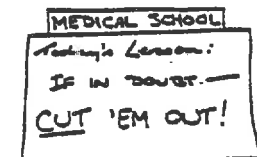 MEDICAL SCHOOL
Today's Lesson:
IF IN DOUBT.—
CUT 'EM OUT!